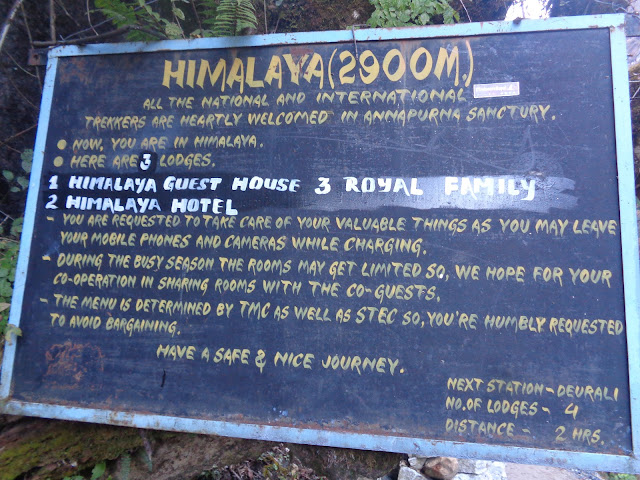 HIMALAYA (2900M.)
ALL THE NATIONAL AND INTERNATIONAL
TREKKERS ARE HEARTLY WELCOMED IN ANNAPURNA SANCTURY.
• NOW, YOU ARE IN HIMALAYA.
• HERE ARE 3 LODGES.
1 HIMALAYA GUEST HOUSE 3 ROYAL FAMILY
2 HIMALAYA HOTEL
- YOU ARE REQUESTED TO TAKE CARE OF YOUR VALUABLE THINGS AS YOU MAY LEAVE
YOUR MOBILE PHONES AND CAMERAS WHILE CHARGING.
- DURING THE BUSY SEASON THE ROOMS MAY GET LIMITED SO, WE HOPE FOR YOUR
CO-OPERATION IN SHARING ROOMS WITH THE CO-GUESTS.
- THE MENU IS DETERMINED BY TMC AS WELL AS STEC SO, YOU'RE HUMBLY REQUESTED
TO AVOID BARGAINING.
HAVE A SAFE & NICE JOURNEY.
NEXT STATION - DEURALI
NO. OF LODGES - 4
DISTANCE - 2 HRS.